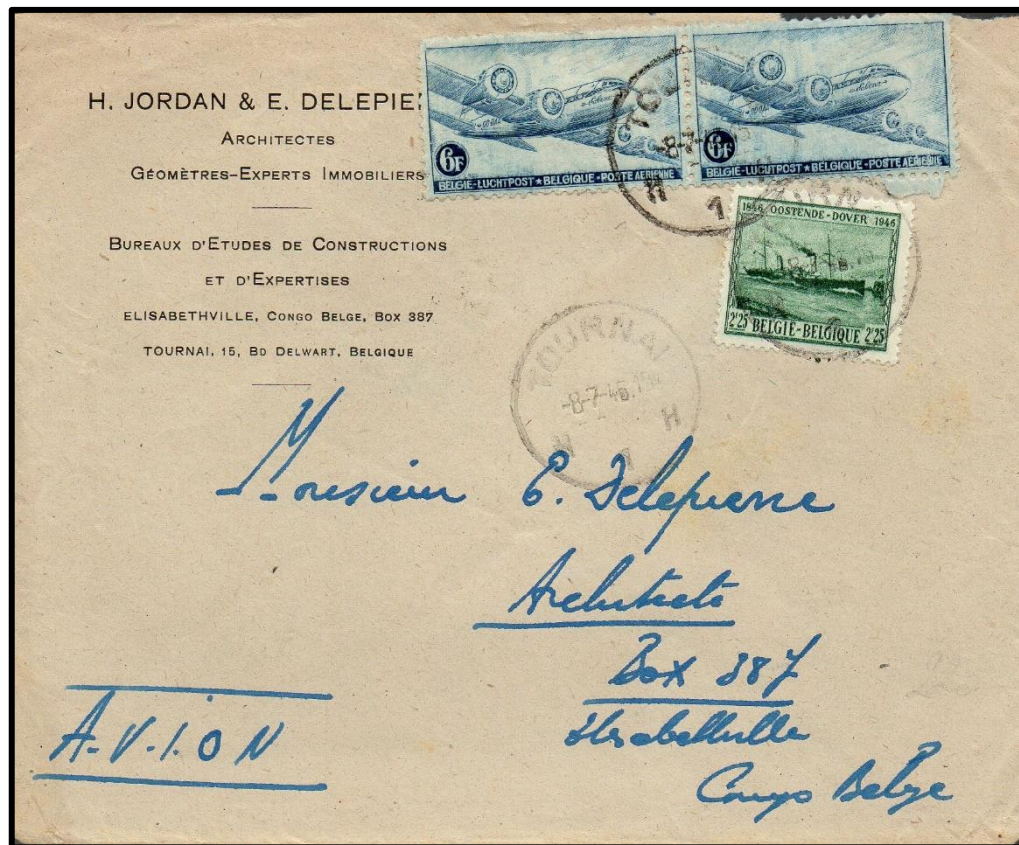 H. JORDAN & E. DELEPIE
ARCHITECTES
GÉOMÈTRES-EXPERTS IMMOBILIERS
BUREAUX D'ETUDES DE CONSTRUCTIONS
ET D'EXPERTISES
ELISABETHVILLE, CONGO BELGE, BOX 387
TOURNAI, 15, BD DELWART, BELGIQUE
6F
BELGIE-LUCHTPOST★BELGIQUE-POSTE AERIENNE
6F
BELGIE-LUCHTPOST★BELGIQUE-POSTE AERIENNE
1846 OOSTENDE-DOVER 1946
2'25 BELGIE-BELGIQUE 2'25
TOURNAI
-8-7-46
1
Monsieur E. Delepierre
Architecte
Box 387
Elisabethville
Congo Belge
A.V.I.O N